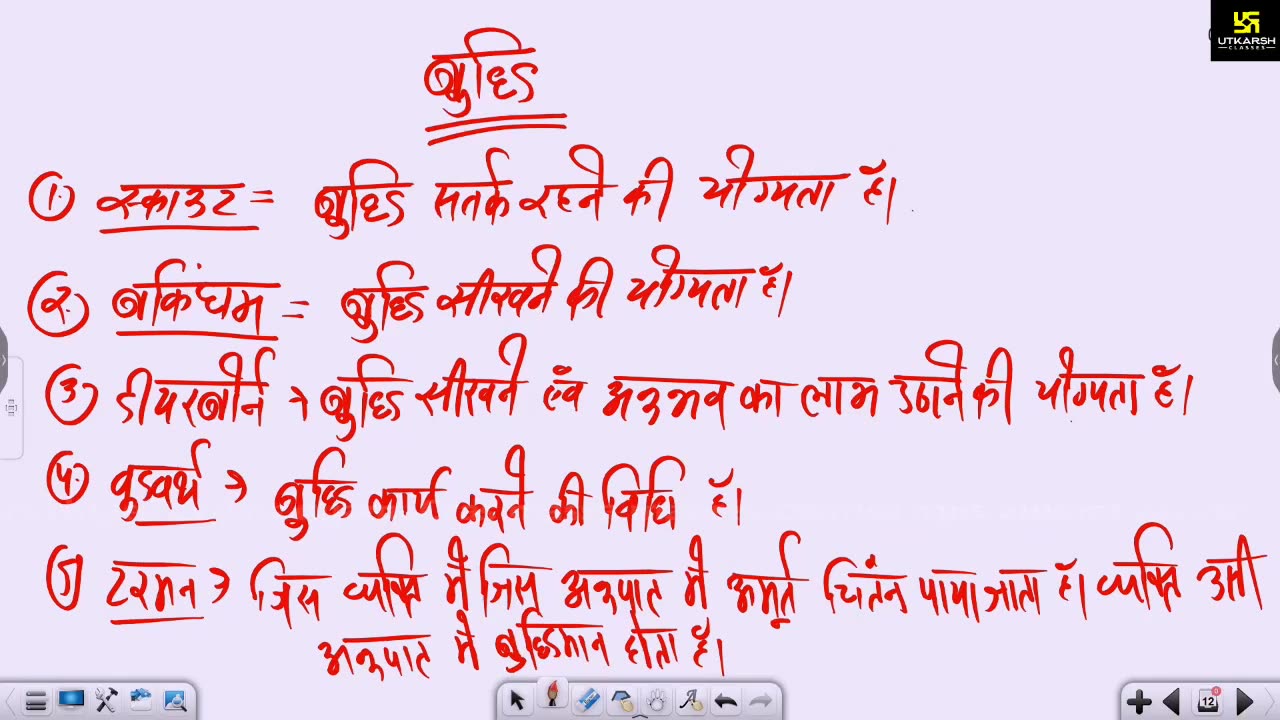 UTKARSH
CLASSES
बुद्धि
१. स्काउट = बुद्धि सतर्क रहने की योग्यता है।
२. बकिंघम = बुद्धि सीखने की योग्यता है।
३ डीयरबोर्न → बुद्धि सीखने एंव अनुभव का लाभ उठाने की योग्यता है।
४. वुडवर्थ → बुद्धि कार्य करने की विधि है।
५ टरमन → जिस व्यक्ति में जिस अनुपात में अमूर्त चिंतन पाया जाता है। व्यक्ति उसी
अनुपात में बुद्धिमान होता है।
12